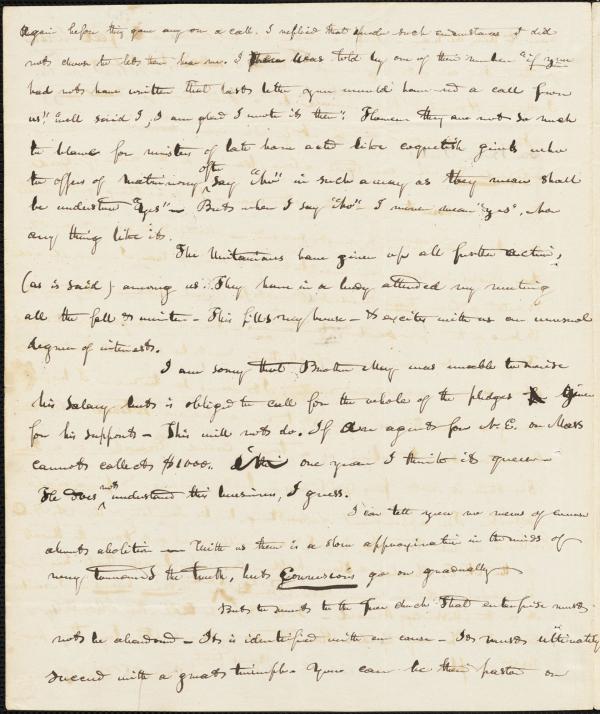 again before they gave any one a call. I replied that under such circumstances I did
not choose to let them hear me. I was told by one of their number "if you
had not have written that last letter you would have had a call from
us" "well said I, I am glad I wrote it then". However they are not so much
to blame for ministers of late have acted like coquetish girls who
to offers of matrimony often say "No" in such a way as they mean shall
be understood "yes" — But when I say "No" I never mean "yes", nor
any thing like it.
The Unitarians have given up all further action,
(as is said) among us. They have in a body attended my meeting
all the fall & winter — This fills my house — & excites with us an unusual
degree of interest.
I am sorry that Brother May was unable to raise
his salary but is obliged to call for the whole of the pledges given
for his support — This will not do. If an agent for N. E. or Mass
cannot collect $1000. in one year I think it queer —
He does not understand this business, I guess.
I can tell you no news of
about abolition — With us there is a slow approximation in the minds of
many towards the truth, but Conversions go on gradually
But to the Free church That enterprise must
not be abandoned — It is identified with our cause — It must ultimately
succeed with a great triumph. You can be their pastor or